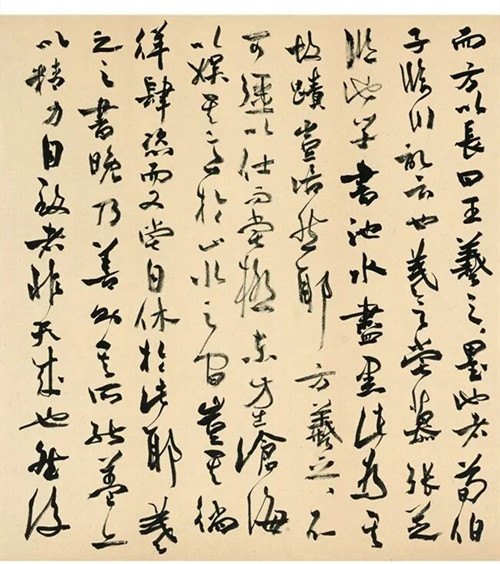 而方以長曰王羲之、墨池者荀伯
子臨川記云也羲之嘗慕張芝
臨池學書池水盡黑此為其
故蹟豈信然耶方羲之、不
可彊以仕而嘗極東方出滄海
以娛其意於山水之間豈其徜
徉肆恣而又嘗自休於此耶羲
之之書晚乃善則其所能蓋亦
以精力自致者非天成也然後